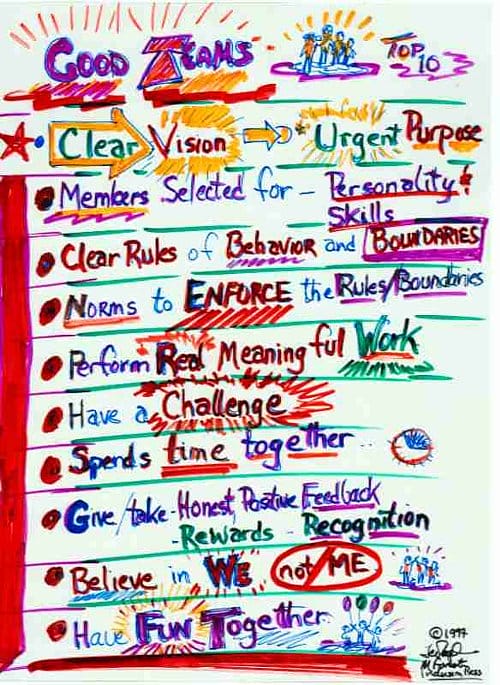 GOOD TEAMS TOP 10
Clear Vision → Urgent Purpose
Members Selected for - Personality &
Skills
Clear Rules of Behavior and BOUNDARIES
NORMS to ENFORCE the Rules/Boundaries
Perform Real Meaningful Work
Have a Challenge
Spends time together..
Give/take - Honest, Positive Feedback
- Rewards - Recognition
Believe in WE not/ME
Have FUN Together
©1997